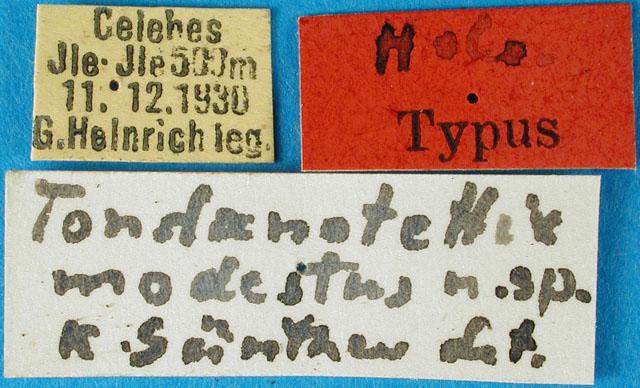 Celebes
Jle-Jle 500m
11.12.1930
G.Heinrich leg.
Holo.
Typus
Tondanotettix
modestus n.sp.
K. Günther det.